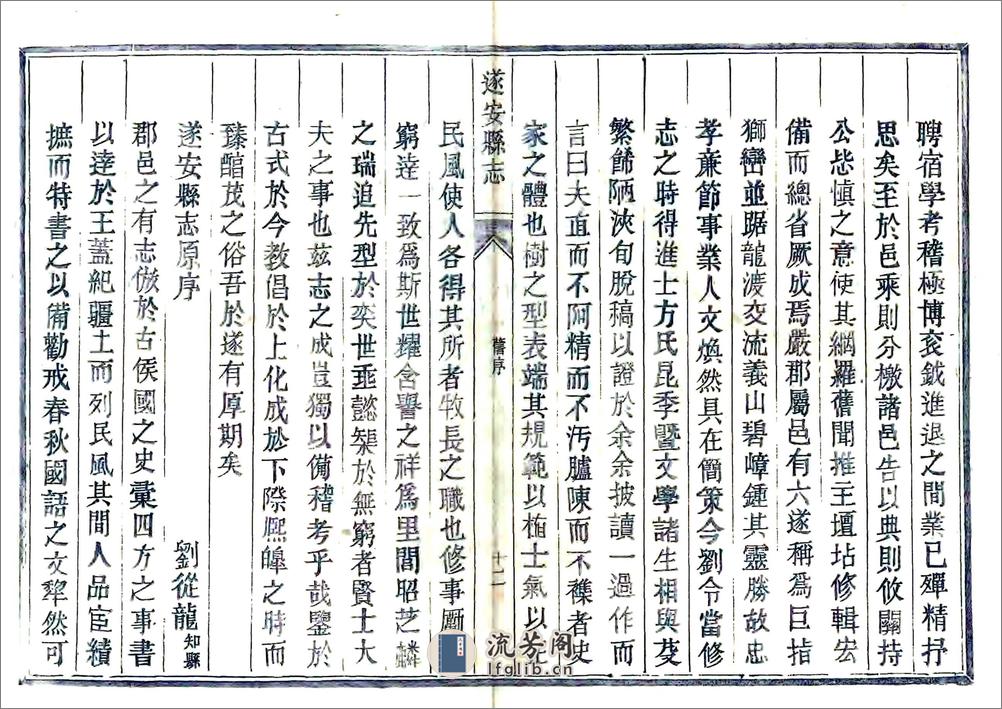 聘宿學考稽極博袞鉞進退之間業已殫精抒
思矣至於邑乘則分檄諸邑告以典則攸關持
公毖慎之意使其綱羅舊聞推王壇坫修輯宏
備而總省厥成焉嚴郡屬邑有六遂稱為巨指
獅巒並踞龍渡交流義山碧嶂鍾其靈勝故忠
孝亷節事業人文煥然具在簡策今劉令當修
志之時得進士方氏昆季暨文學諸生相與芟
繁飾陋浹旬脫稿以證於余余披讀一過作而
言曰夫直而不阿精而不汚臚陳而不襍者史
家之體也樹之型表端其規範以植士氣以
遂安縣志
舊序
十二
民風使人各得其所者牧長之職也修事勵
窮達一致為斯世耀含譽之祥為里閭昭芝麟
之瑞追先型於奕世垂懿榘於無窮者賢士大
夫之事也兹志之成豈獨以備稽考乎哉鑒於
古式於今教倡於上化成於下際熙皞之時而
臻醕茂之俗吾於遂有厚期矣
遂安縣志原序
劉從龍知縣
郡邑之有志倣於古侯國之史彙四方之事書
以達於王蓋紀疆土而列民風其間人品宦績
摭而特書之以備勸戒春秋國語之文犂然可
流芳阁
lfglib.com